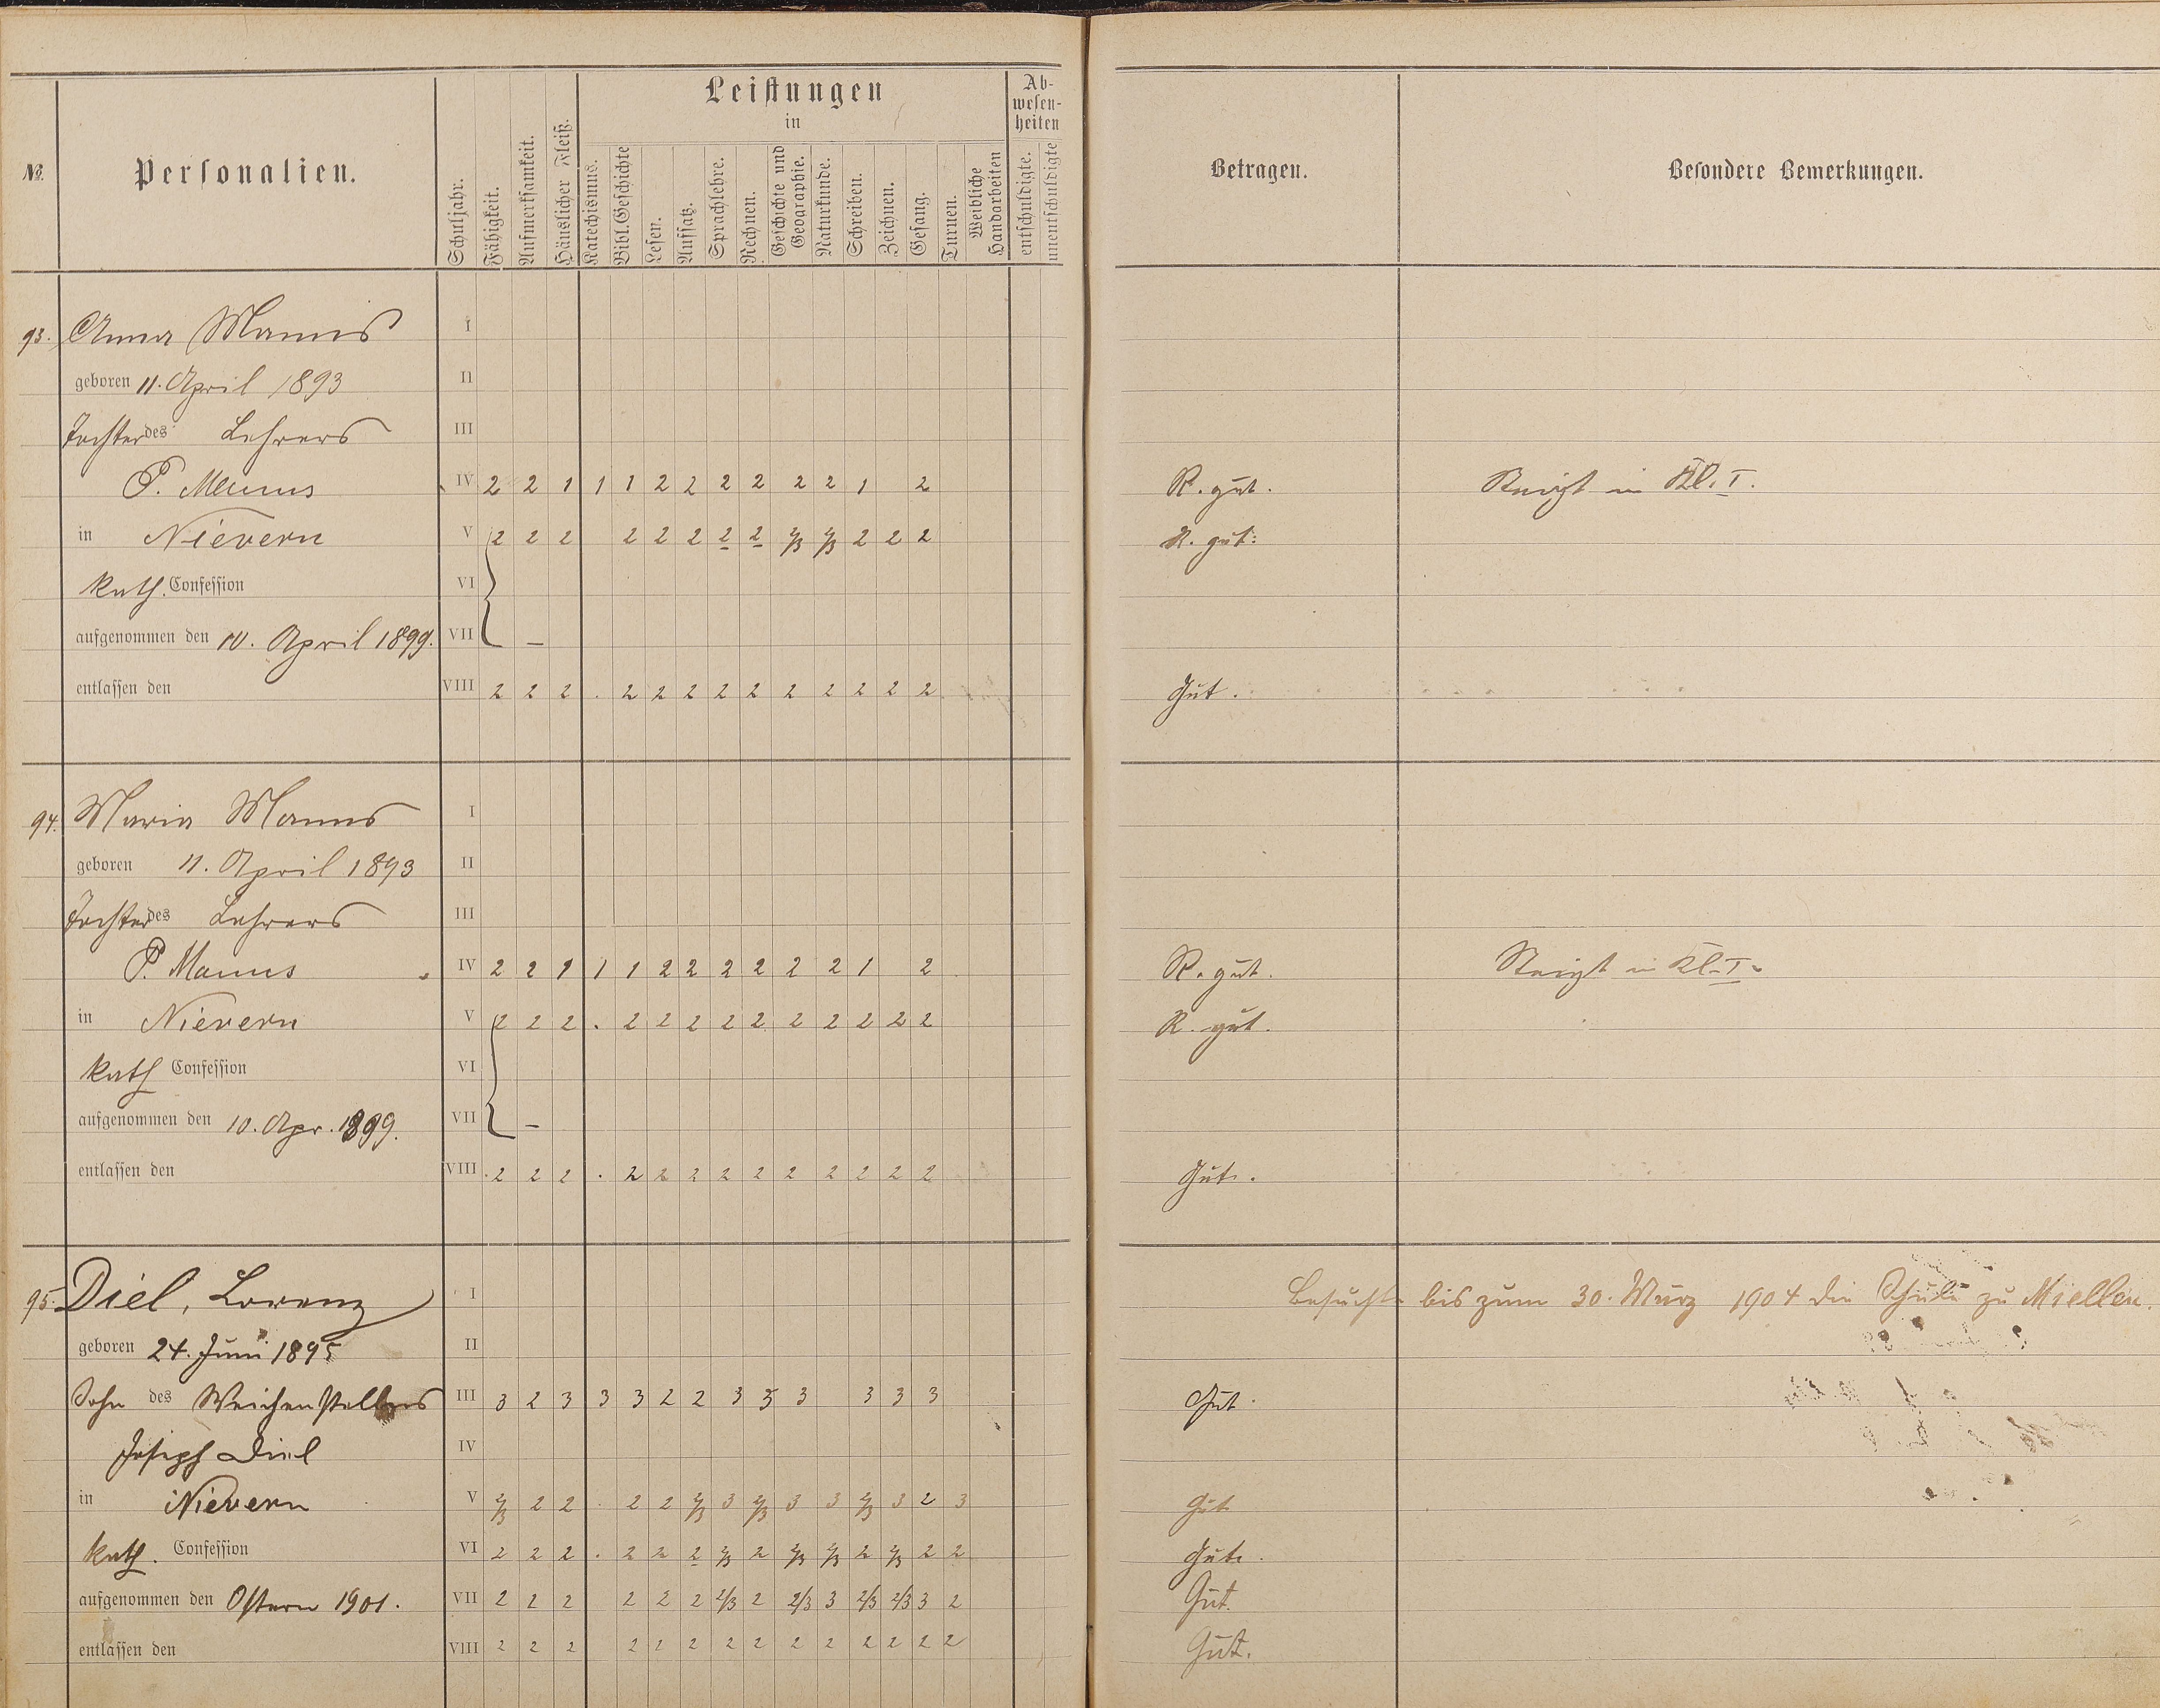 Leistungen
in
Ab-
wesen-
heiten
№.
Personalien.
Schuljahr.
Fähigkeit.
Aufmerksamkeit.
Häuslicher Fleiß.
Katechismus.
Bibl. Geschichte
Lesen.
Aufsatz.
Sprachlehre.
Rechnen.
Geschichte und
Geographie.
Naturkunde.
Schreiben.
Zeichnen.
Gesang.
Turnen.
Weibliche
Handarbeiten
entschuldigte.
unentschuldigte
Betragen.
Besondere Bemerkungen.
93. Anna Manns I
geboren 11. April 1893 II
Tochter des Lehrers III
P. Manns IV 2 2 1 1 1 2 2 2 2 2 2 1 2 R. gut. Steigt in Kl. I.
in Nievern V 2 2 2 2 2 2 2 2 2/3 2/3 2 2 2 R. gut.
kath. Confession VI
aufgenommen den 10. April 1899. VII –
entlassen den VIII 2 2 2 . 2 2 2 2 2 2 2 2 2 2 Gut.
94. Maria Manns I
geboren 11. April 1893 II
Tochter des Lehrers III
P. Manns IV 2 2 1 1 1 2 2 2 2 2 2 1 2 R. gut. Steigt in Kl. I.
in Nievern V 2 2 2 . 2 2 2 2 2 2 2 2 2 2 R. gut.
kath Confession VI
aufgenommen den 10. Apr. 1899. VII –
entlassen den VIII 2 2 2 . 2 2 2 2 2 2 2 2 2 2 Gut.
95. Diel, Lorenz I Besuchte bis zum 30. März 1904 die Schule zu Miellen.
geboren 24. Juni 1895 II
Sohn des Weichenstellers III 3 2 3 3 3 2 2 3 3 3 3 3 3 Gut.
Joseph Diel IV
in Nievern V 2/3 2 2 . 2 2 2/3 3 2/3 3 3 2/3 3 2 3 Gut
kath. Confession VI 2 2 2 . 2 2 2 2/3 2 2/3 2/3 2 2/3 2 2 Gut.
aufgenommen den Ostern 1901. VII 2 2 2 2 2 2 2/3 2 2/3 3 2/3 2/3 3 2 Gut.
entlassen den VIII 2 2 2 2 2 2 2 2 2 2 2 2 2 2 Gut.